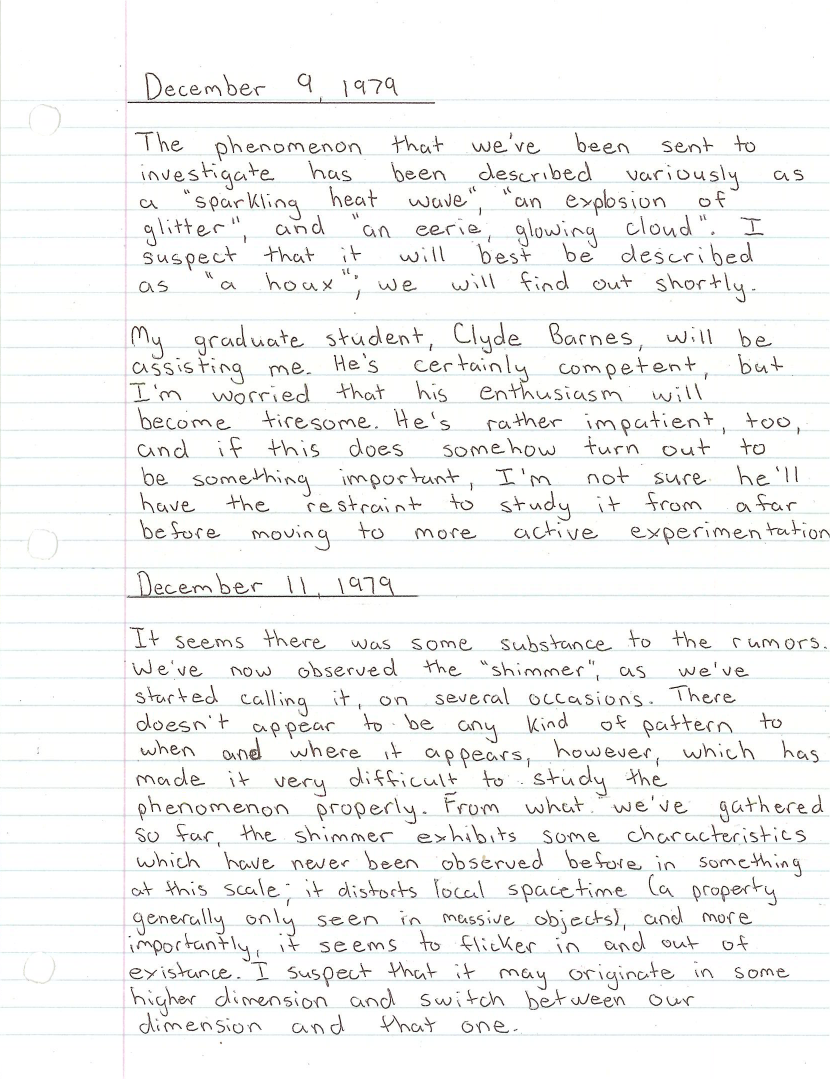 December 9, 1979
The phenomenon that we've been sent to
investigate has been described variously as
a "sparkling heat wave", "an explosion of
glitter", and "an eerie, glowing cloud". I
suspect that it will best be described
as "a hoax"; we will find out shortly.
My graduate student, Clyde Barnes, will be
assisting me. He's certainly competent, but
I'm worried that his enthusiasm will
become tiresome. He's rather impatient, too,
and if this does somehow turn out to
be something important, I'm not sure he'll
have the restraint to study it from afar
before moving to more active experimentation
December 11, 1979
It seems there was some substance to the rumors.
We've now observed the "shimmer", as we've
started calling it, on several occasions. There
doesn't appear to be any kind of pattern to
when and where it appears, however, which has
made it very difficult to study the
phenomenon properly. From what we've gathered
so far, the shimmer exhibits some characteristics
which have never been observed before in something
at this scale; it distorts local spacetime (a property
generally only seen in massive objects), and more
importantly, it seems to flicker in and out of
existance. I suspect that it may originate in some
higher dimension and switch between our
dimension and that one.